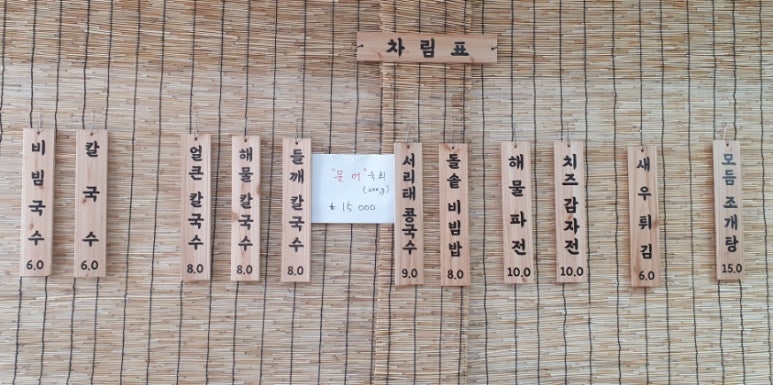 차림표
비빔국수
6.0
칼국수
6.0
얼큰 칼국수
8.0
해물 칼국수
8.0
들깨 칼국수
8.0
"문어"숙회
(200g)
₩ 15 000
서리태 콩국수
9.0
돌솥 비빔밥
8.0
해물 파전
10.0
치즈 감자전
10.0
새우튀김
6.0
모듬 조개탕
15.0